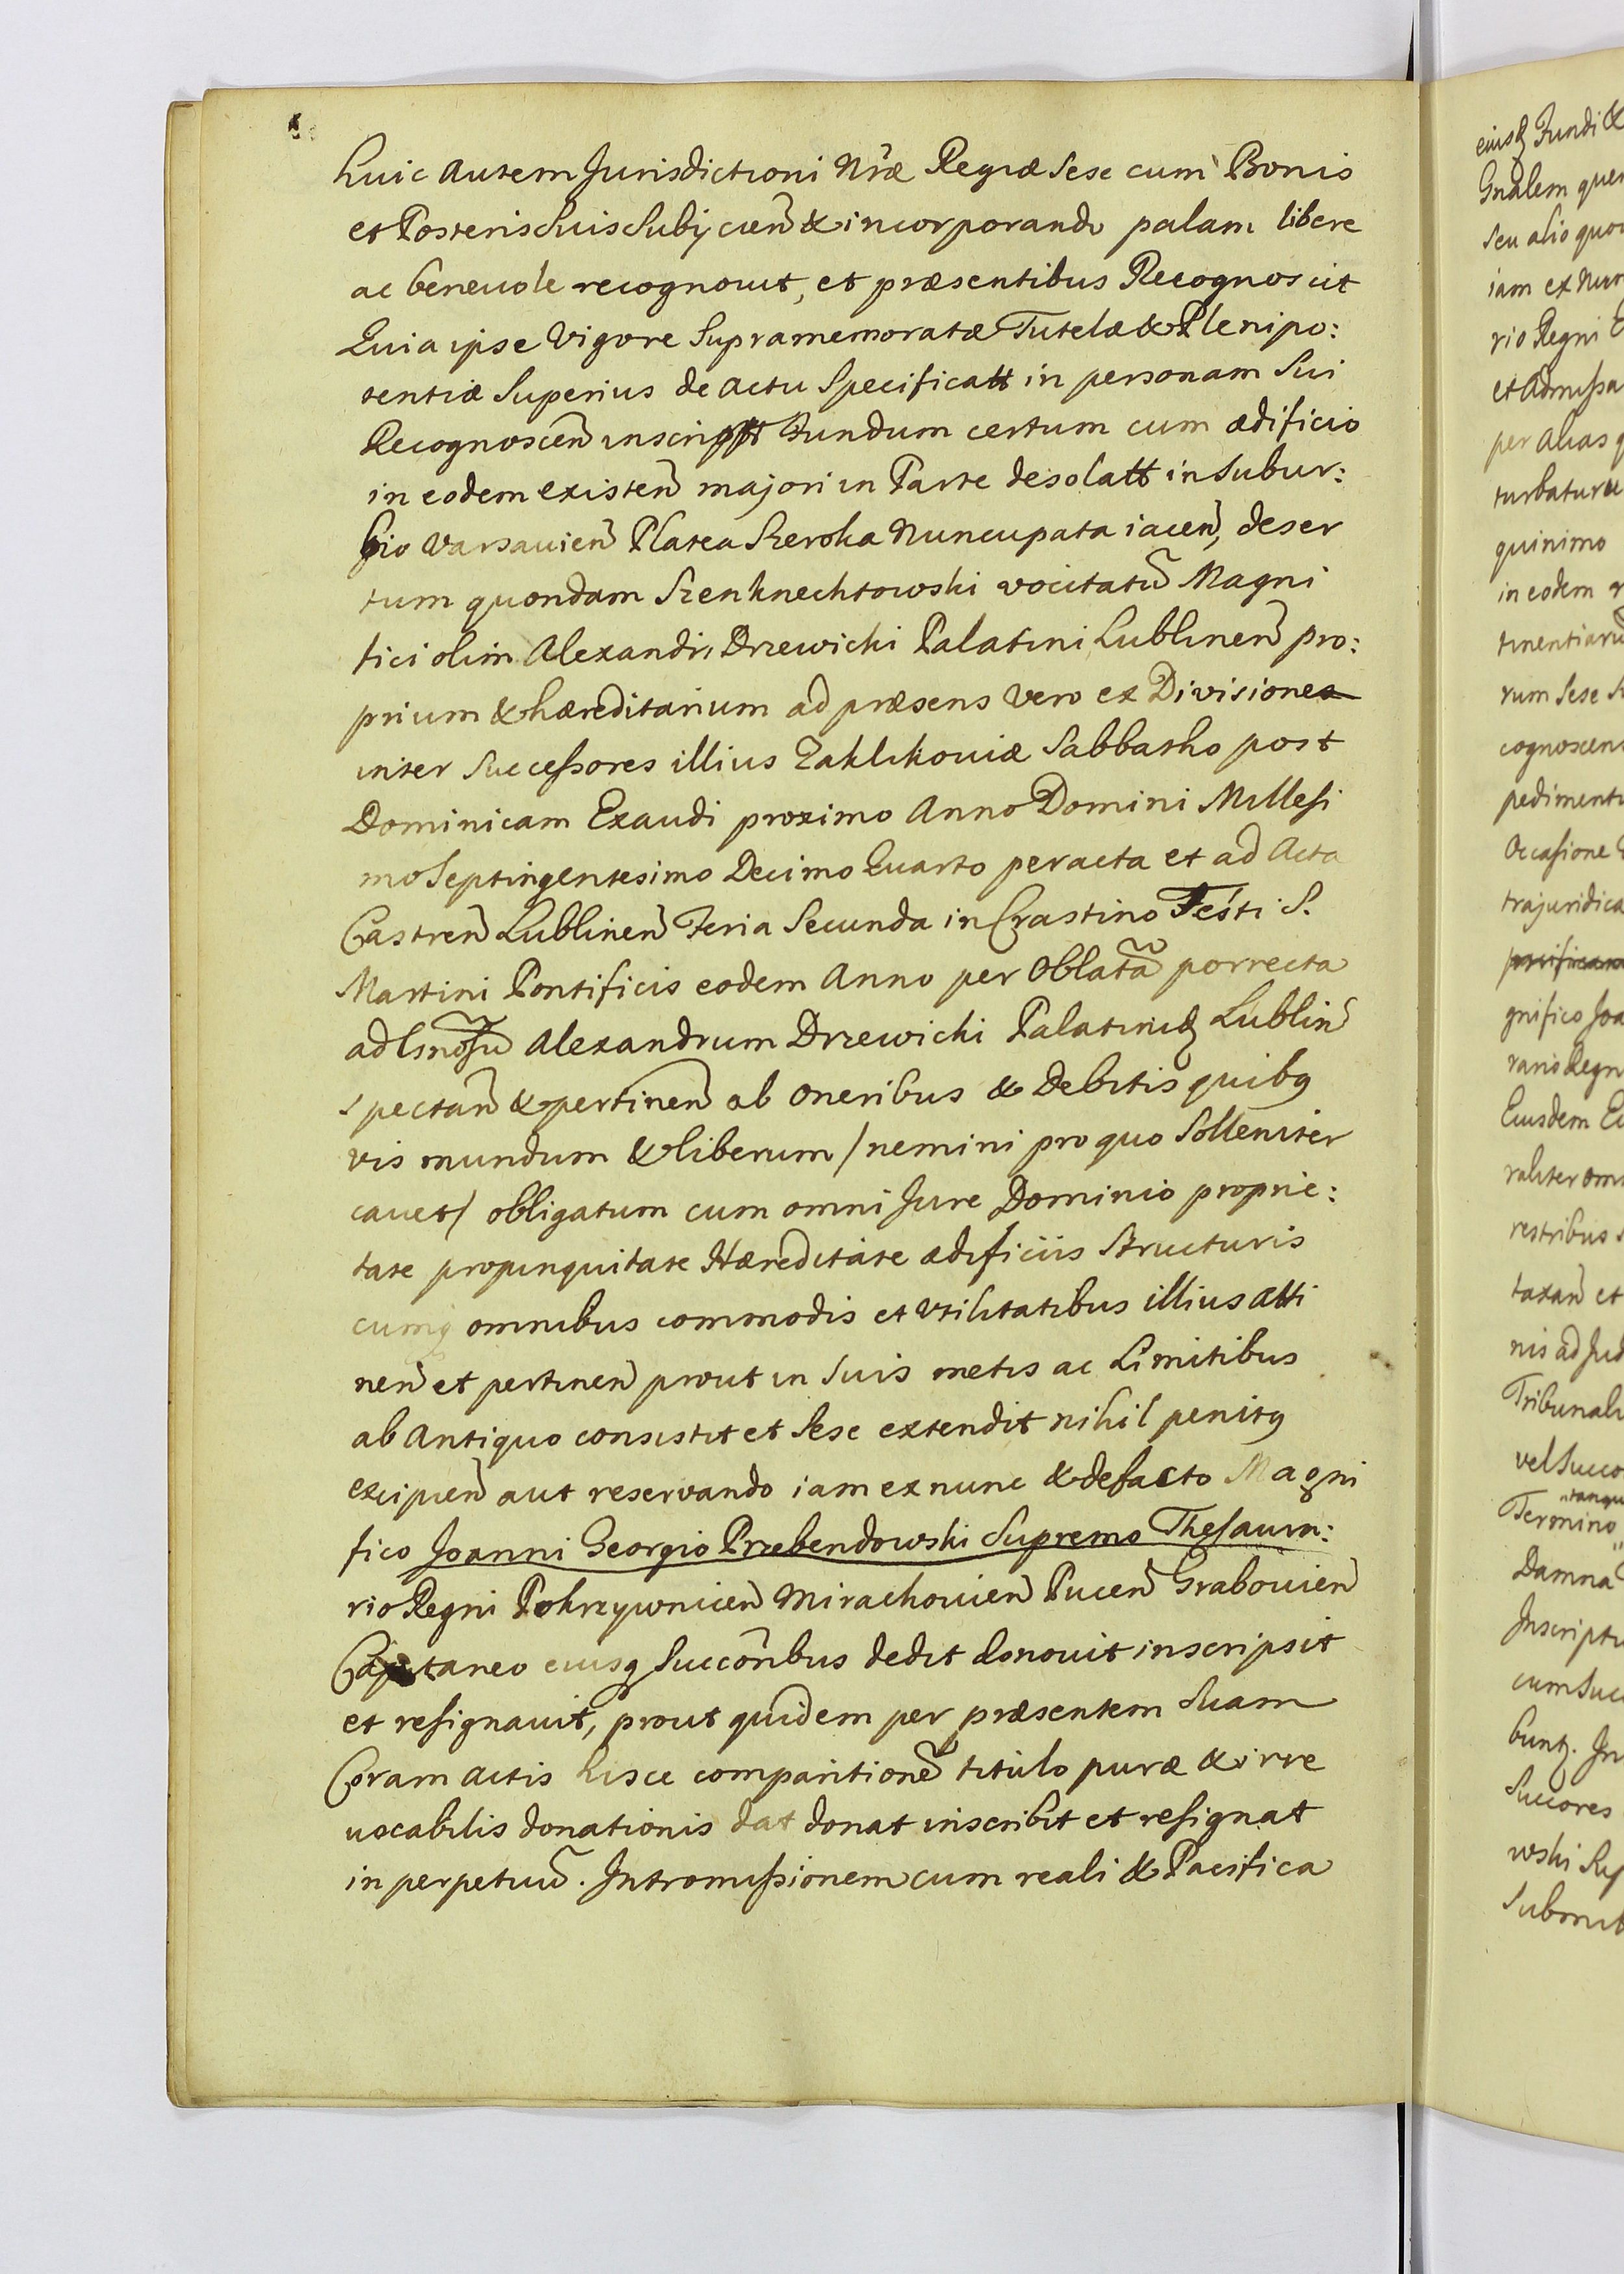 huic autem Jurisdictioni Nræ Regiæ sese cum Bonis
et Posteris Suis Subijcien̄ & incorporando palam libere
ac beneuole recognouit, et præsentibus Recognoscit
Quia ipse Vigore Supramemoratæ Tutelæ & Plenipo:
tentiæ Superius de actu Specificatt in personam Sui
Recognoscen̄ inscriptt Fundum certum cum ædificio
in eodem existen̄ majori in Parte desolatt in Subur:
bio Varsauien̄ Platea Szeroka Nuncupata iacen̄, deser
tum quondam Szenknechtowski vocitatū Magni
fici olim Alexandri Drzewicki Palatini Lublinen̄ pro:
prium & hæreditarium ad præsens vero ex Divisione
inter Successores illius Zaklikouiæ Sabbatho post
Dominicam Exaudi proximo Anno Domini Millesi
mo Septingentesimo Decimo Quarto peracta et ad Acta
Castren̄ Lublinen̄ Feria Secunda in Crastino Festi S.
Martini Pontificis eodem Anno per Oblatā porrecta
ad Gnosū Alexandrum Drzewicki Palatinidę Lublin̄
spectan̄ & pertinen̄ ab oneribus & Debitis quibꝯ
vis mundum & liberum / nemini pro quo Solleniter
cauet / obligatum cum omni Jure Dominio proprie:
tate propinquitate Hæreditate ædificiis Structuris
cumq omnibus commodis et Vtilitatibus illius atti
nen̄ et pertinen̄ prout in Suis metis ac Limitibus
ab Antiquo consistit et Sese extendit nihil penitꝯ
excipien̄ aut reservando iam ex nunc & de facto Magni
fico Joanni Georgio Przebendowski Supremo Thesaura:
rio Regni Pokrzywnicen̄ Mirachouien̄ Pucen̄ Grabouien̄
Capitaneo eiusq Succōribus dedit donouit inscripsit
et resignauit, prout quidem per præsentem Suam
Coram actis hisce comparitionē titulo puræ & irre
uocabilis donationis dat donat inscribit et resignat
in perpetuū. Intromissionem cum reali & Pacifica
eiusq Fundi &
Gnalem
seu alio
iam ex nunc
rio Regni
et Admissa
per alias
turbatur
quinimo
in eodem
tinentiarū
rum Sese
pediment
Occasione
trajuridica
gnifico
rario Regn
Eiusdem
raliter
restribus
taxan̄ et
nis ad
Tribunal
vel Succo
Termino
Damna
Inscript
cum
bunt. In
Succores
wski
Submit